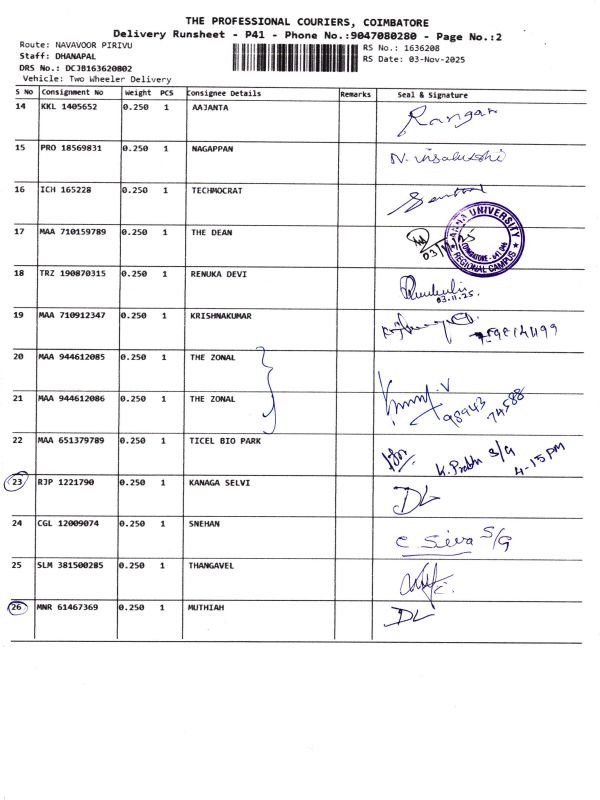 THE PROFESSIONAL COURIERS, COIMBATORE
Delivery Runsheet - P41 - Phone No.:9047080280 - Page No.:2
Route: NAVAVOOR PIRIVU
RS No.: 1636208
Staff: DHANAPAL
RS Date: 03-Nov-2025
DRS No.: DCJB163620802
Vehicle: Two Wheeler Delivery
S No Consignment No Weight PCS Consignee Details Remarks Seal & Signature
14 KKL 1405652 0.250 1 AAJANTA Rangan
15 PRO 18569831 0.250 1 NAGAPPAN N. Visalakshi
16 ICH 165228 0.250 1 TECHMOCRAT
17 MAA 710159789 0.250 1 THE DEAN 03/11/25
ANNA UNIVERSITY
COIMBATORE - 641 046
REGIONAL CAMPUS
18 TRZ 190870315 0.250 1 RENUKA DEVI
03.11.25.
19 MAA 710912347 0.250 1 KRISHNAKUMAR
20 MAA 944612085 0.250 1 THE ZONAL
21 MAA 944612086 0.250 1 THE ZONAL
98943 74588
22 MAA 651379789 0.250 1 TICEL BIO PARK K. Prabhu S/G
4-15 PM
23 RJP 1221790 0.250 1 KANAGA SELVI DL
24 CGL 12009074 0.250 1 SNEHAN C Siva S/G
25 SLM 381500285 0.250 1 THANGAVEL
26 MNR 61467369 0.250 1 MUTHIAH DL